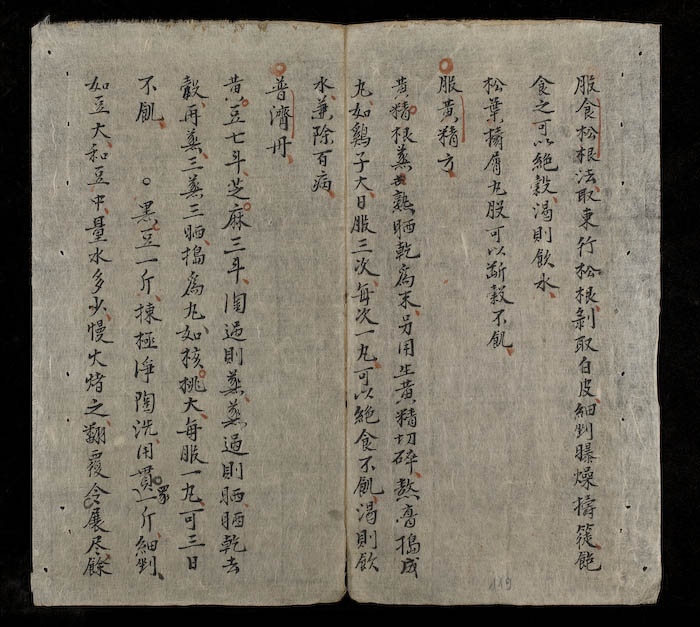 服食松根法取東行松根剝取白皮細剉曝燥擣篩飽
食之可以絕穀渴則飲水
松葉擣屑丸服可以斷穀不飢
服黃精方
黃精根蒸熟晒乾爲末另用生黃精切碎熬膏搗成
丸如鷄子大日服三次每次一丸可以絕食不飢渴則飲
水兼除百病
普濟丹
黃豆七斗芝麻三斗淘過則蒸蒸過則晒晒乾去
殼再蒸三蒸三晒搗爲丸如核桃大每服一丸可三日
不飢 。黑豆一斤揀極淨陶洗用貫眾一斤細剉
如豆大和豆中量水多少慢火煮之翻覆令展尽餘
119